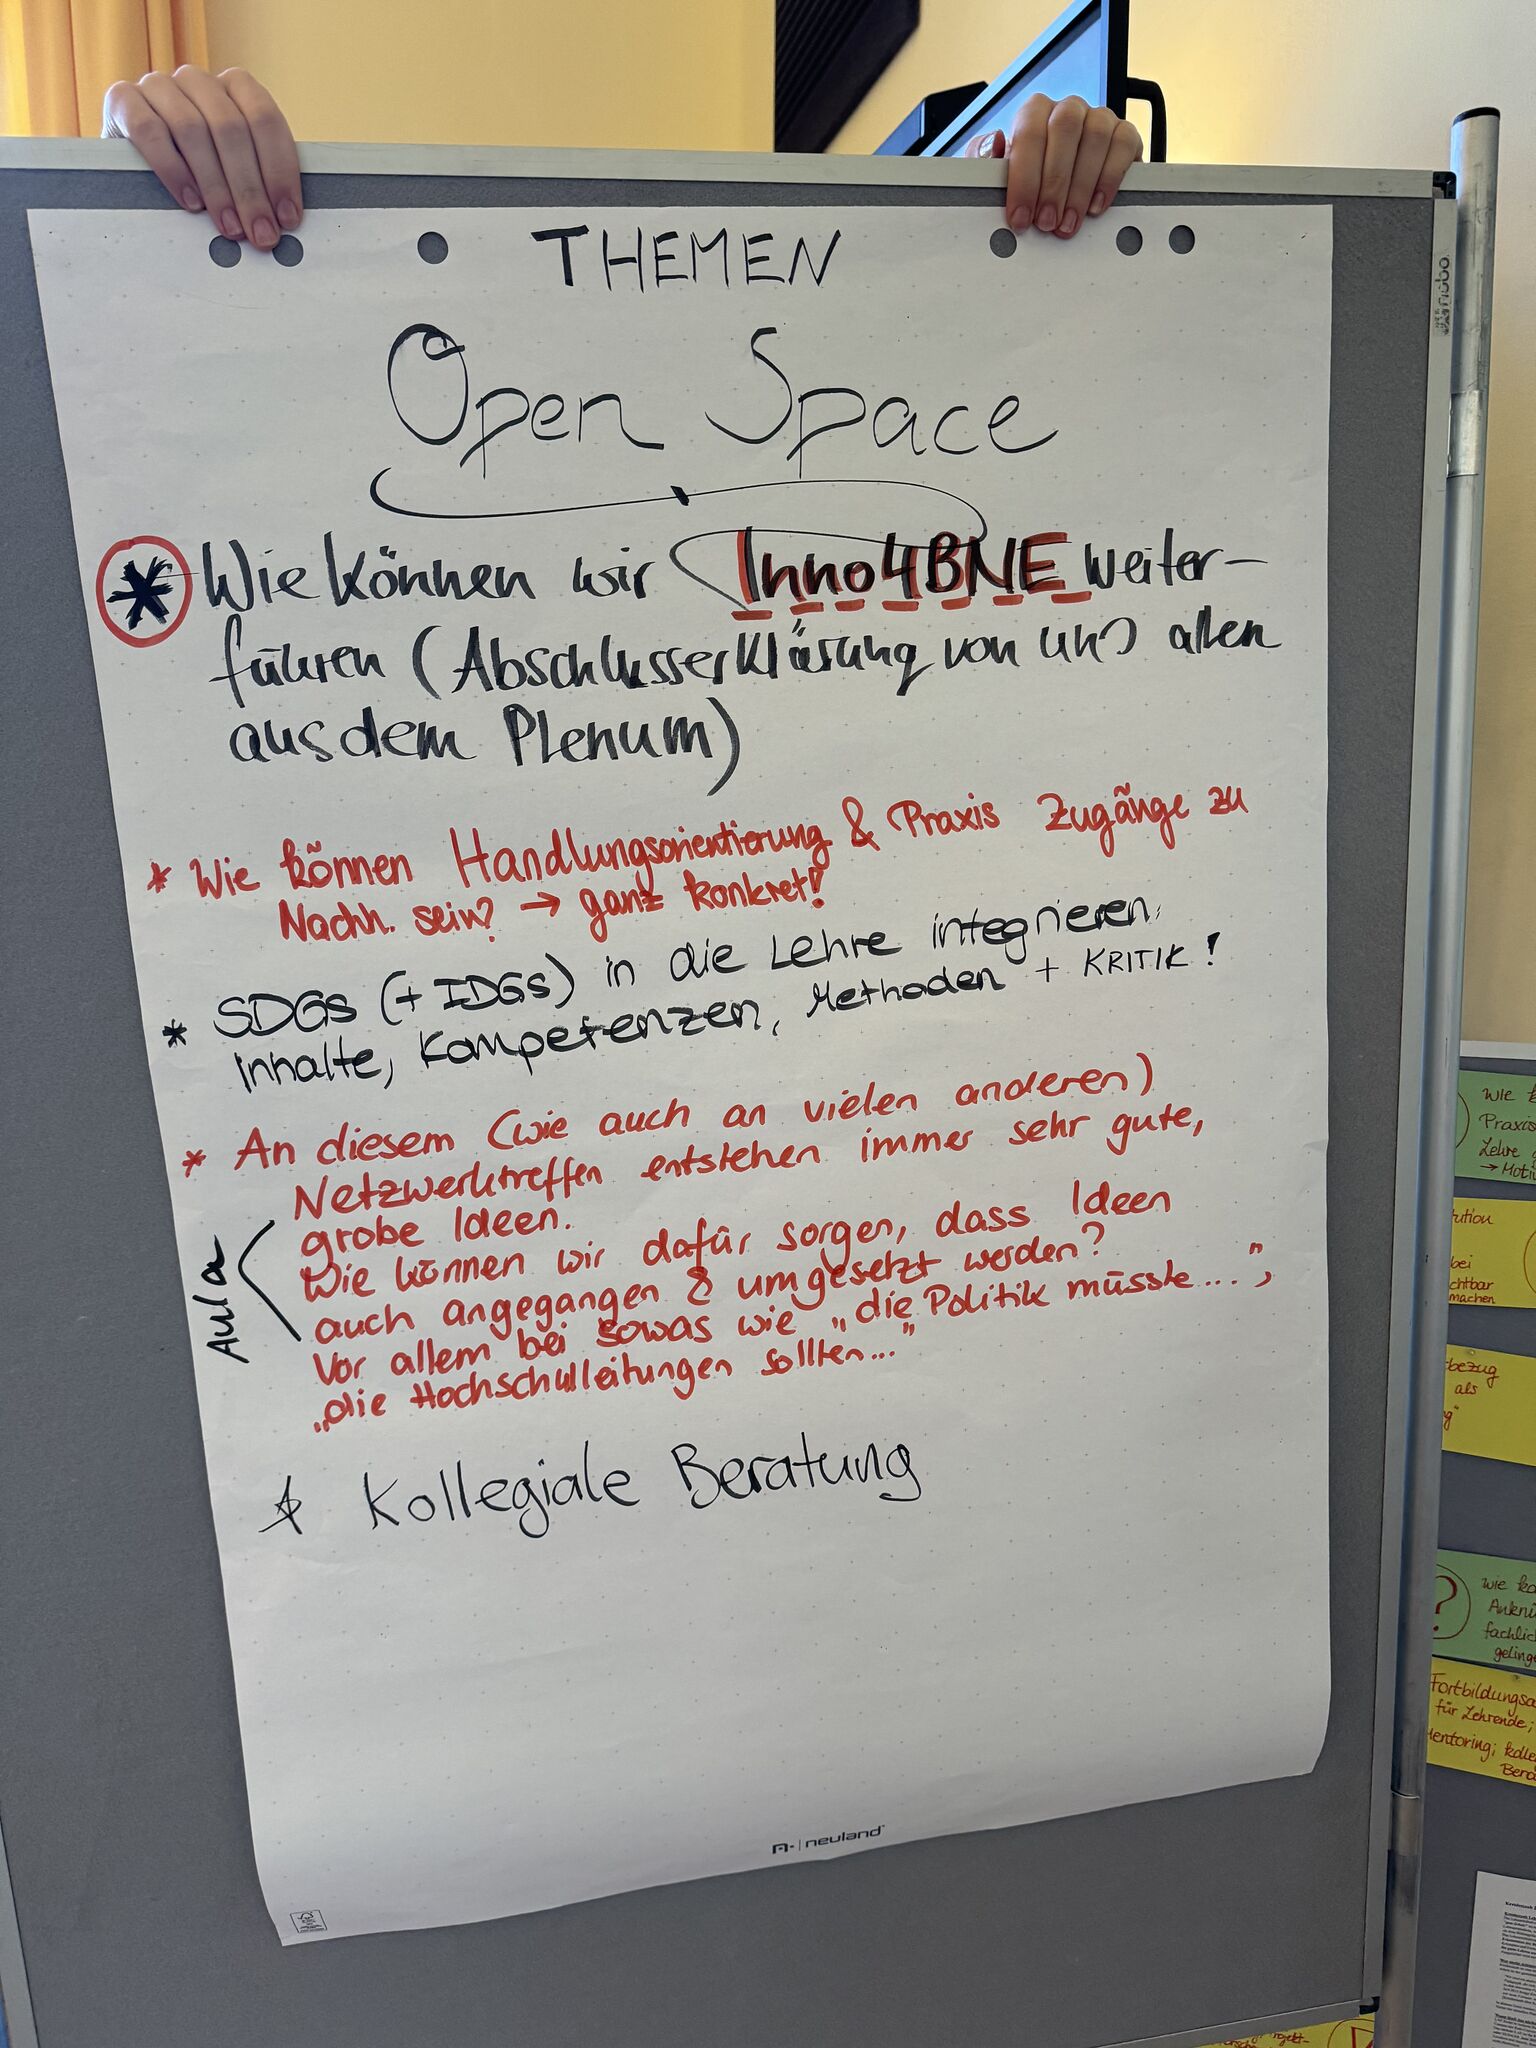 THEMEN
Open Space
* Wie können wir Inno4BNE weiter-
führen (Abschlusserklärung von uns allen
aus dem Plenum)
* Wie können Handlungsorientierung & Praxis Zugänge zu
Nachh. sein? → ganz konkret!
* SDGs (+ IDGs) in die Lehre integrieren:
Inhalte, Kompetenzen, Methoden + KRITIK!
* An diesem (wie auch an vielen anderen)
Netzwerktreffen entstehen immer sehr gute,
grobe Ideen.
Wie können wir dafür sorgen, dass Ideen
auch angegangen & umgesetzt werden?
Vor allem bei sowas wie „die Politik müsste...",
„die Hochschulleitungen sollten..."
Aula
* Kollegiale Beratung
neuland
Wie
Praxis
Lehre
→ Moti
bei
machen
bezug
als
?
wie
fachlic
geling
Fortbildungsa
für Lehrende;
Mentoring; kolle
Bera